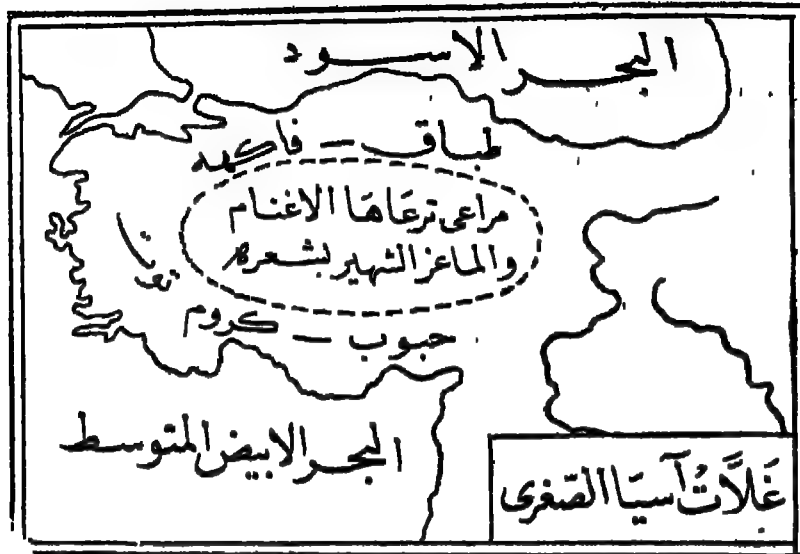 البحر الاسود
طباق – فاكهه
مراعى ترعاها الاغنام
والماعز الشهير بشعره
تين
حبوب – كروم
البحر الابيض المتوسط
غَلَّاتُ آسيَا الصّغرى